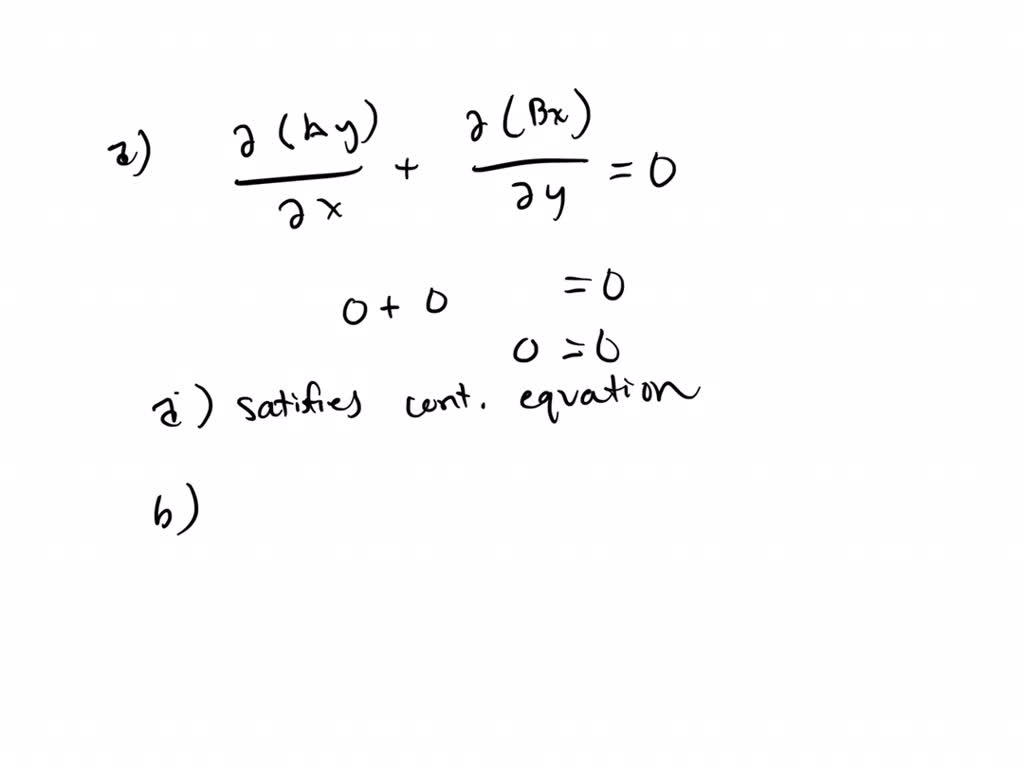 a) ∂(Ay)/∂x + ∂(Bx)/∂y = 0
0 + 0 = 0
0 = 0
a) satifies cont. equation
b)